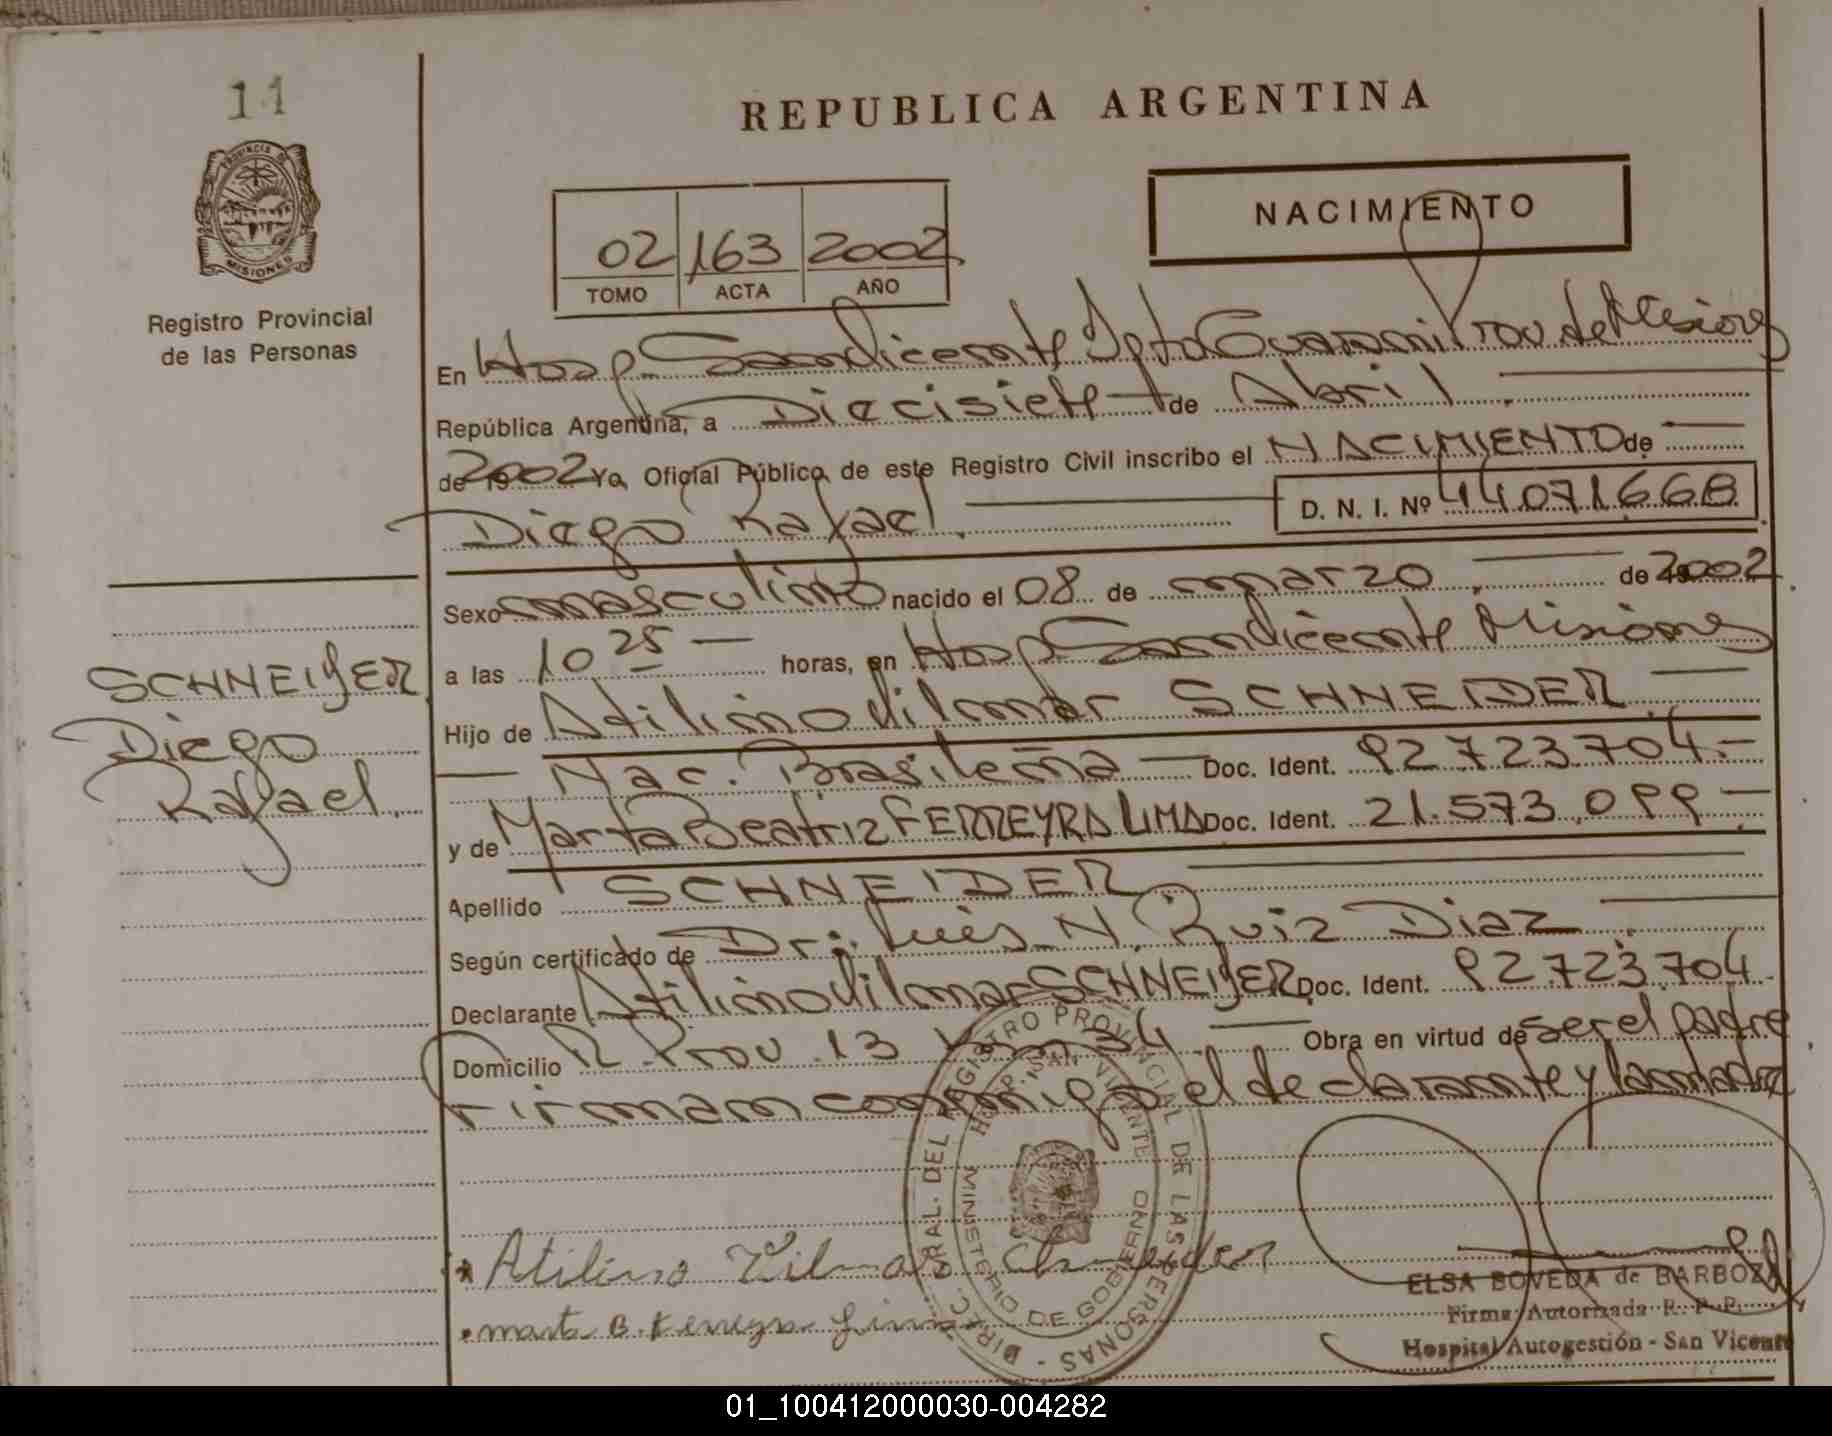 11
REPUBLICA ARGENTINA
PROVINCIA DE
MISIONES
Registro Provincial
de las Personas
NACIMIENTO
02 163 2002
TOMO ACTA AÑO
En Hosp San Vicente Dpto Guaraní Prov de Misiones
República Argentina, a Diecisiete de Abril
de 2002 Yo, Oficial Público de este Registro Civil inscribo el NACIMIENTO de
Diego Rafael D. N. I. Nº 44.071.668
Sexo masculino nacido el 08 de marzo de 2002
a las 10 25 horas, en Hosp San Vicente Misiones
Hijo de Atilino Vilmar SCHNEIDER
Nac. Brasileña Doc. Ident. 92.723.704
y de Marta Beatriz FERREYRA LIMA Doc. Ident. 21.573.099
Apellido SCHNEIDER
Según certificado de Dr. Luis N. Ruiz Diaz
Declarante Atilino Vilmar SCHNEIDER Doc. Ident. 92.723.704
Domicilio R. Prov. 13 Km 34 Obra en virtud de ser el padre
Firman conmigo el declarante y la madre
SCHNEIDER
Diego
Rafael
DIREC. GRAL. DEL REGISTRO PROVINCIAL DE LAS PERSONAS
HOSP. SAN VICENTE
MINISTERIO DE GOBIERNO
Atilino Vilmar Schneider
Marta B. Ferreyra Lima
ELSA BOVEDA de BARBOZA
Firma Autorizada R. P. P.
Hospital Autogestión - San Vicente
01_100412000030-004282